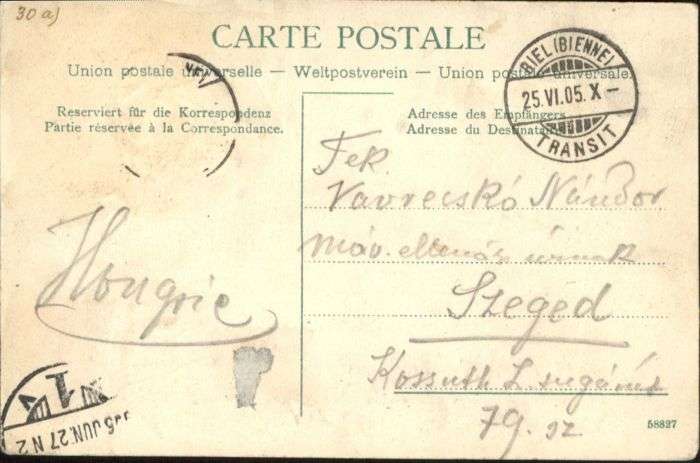 30 a)
CARTE POSTALE
Union postale universelle — Weltpostverein — Union postale universale.
Reserviert für die Korrespondenz
Partie réservée à la Correspondance.
Adresse des Empfängers
Adresse du Destinataire
BIEL (BIENNE)
25.VI.05.X–
TRANSIT
Tek.
Vavrecskó Nándor
máv. ellenőr úrnak
Szeged
Kossuth L. sugárút
79. sz
Hongrie
JUN. 27 N 2
58827